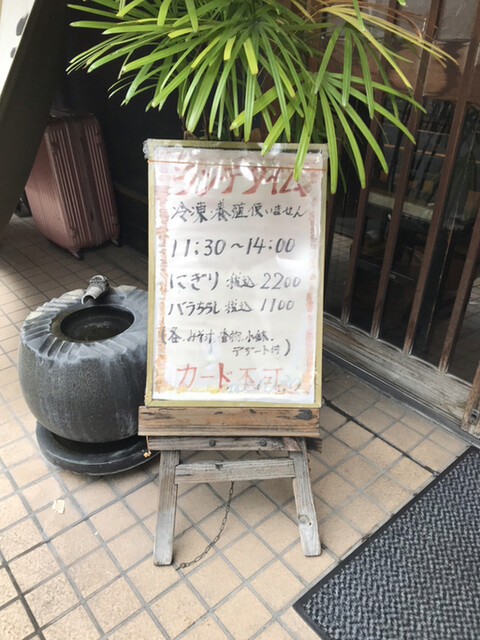 ランチタイム
冷凍・養殖使いません
11:30〜14:00
にぎり 税込 2200
バラちらし 税込 1100
みそ汁、香物、小鉢、
デザート付)
カード不可